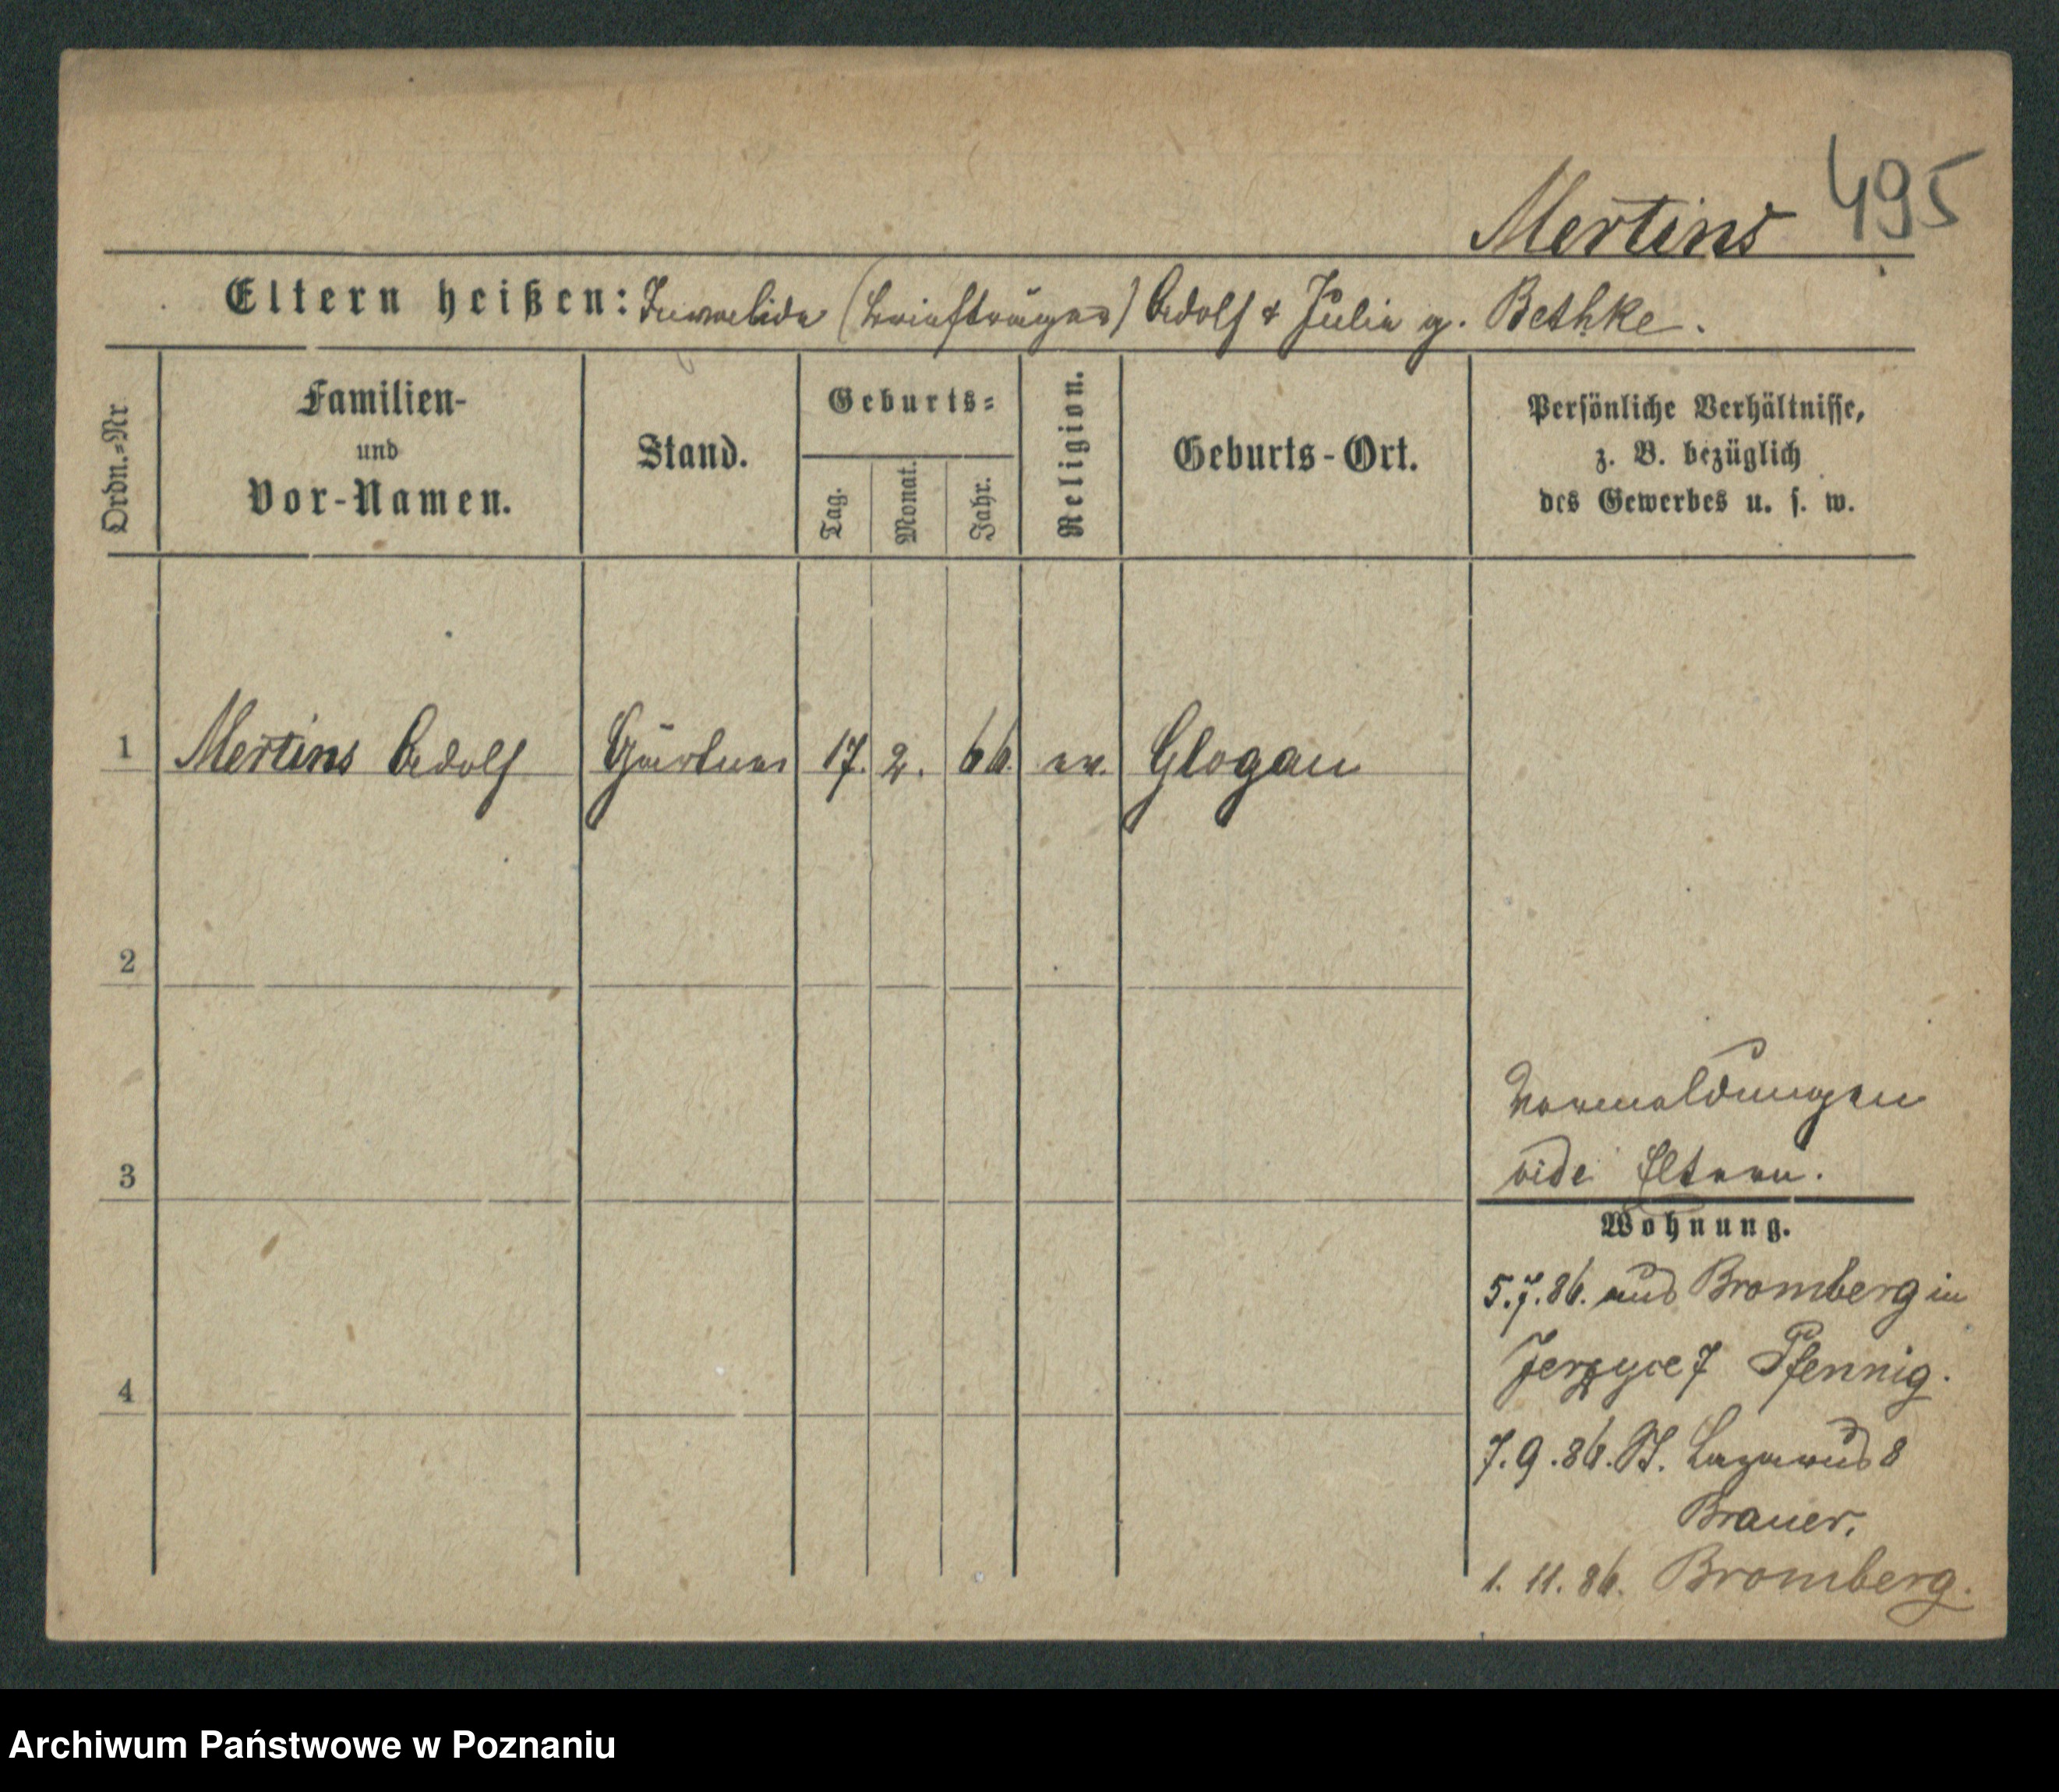 495
Mertins
Eltern heißen: Invalide (Briefträger) Adolf & Julie g. Bethke.
Ordn.-Nr
Familien-
und
Vor-Namen.
Stand.
Geburts-
Tag.
Monat.
Jahr.
Religion.
Geburts-Ort.
Persönliche Verhältnisse,
z. B. bezüglich
des Gewerbes u. s. w.
1 Mertins Adolf Gärtner 17. 2. 66. ev. Glogau
2
3
4
Vormeldungen
vide Eltern.
Wohnung.
5.7.86. aus Bromberg in
Jerzyce 7 Pfennig.
7.9.86. St. Lazarus 8
Brauer.
1. 11. 86. Bromberg.
Archiwum Państwowe w Poznaniu